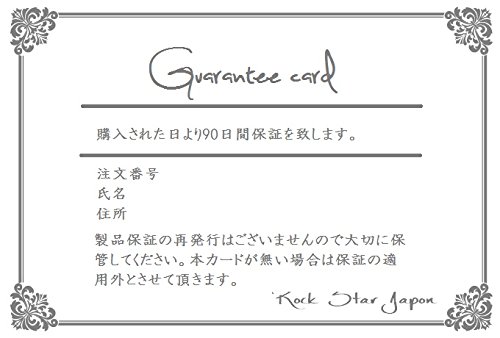 Guarantee card
購入された日より90日間保証を致します。
注文番号
氏名
住所
製品保証の再発行はございませんので大切に保
管してください。本カードが無い場合は保証の適
用外とさせて頂きます。
Rock Star Japon